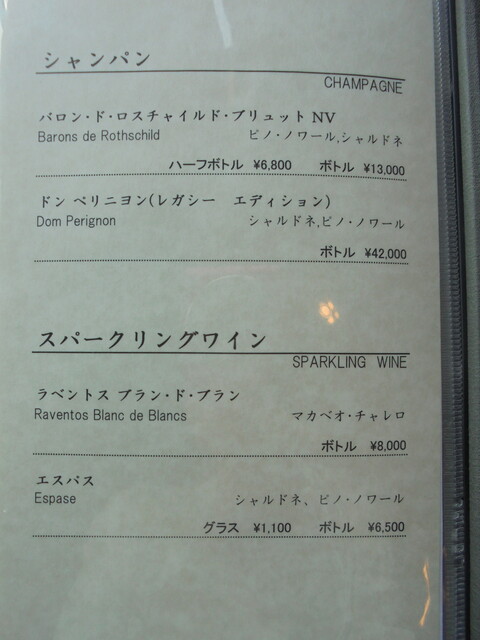 シャンパン
CHAMPAGNE
バロン・ド・ロスチャイルド・ブリュット NV
Barons de Rothschild ピノ・ノワール,シャルドネ
ハーフボトル ¥6,800 ボトル ¥13,000
ドン ペリニヨン(レガシー エディション)
Dom Perignon シャルドネ,ピノ・ノワール
ボトル ¥42,000
スパークリングワイン
SPARKLING WINE
ラベントス ブラン・ド・ブラン
Raventos Blanc de Blancs マカベオ・チャレロ
ボトル ¥8,000
エスパス
Espase シャルドネ、ピノ・ノワール
グラス ¥1,100 ボトル ¥6,500